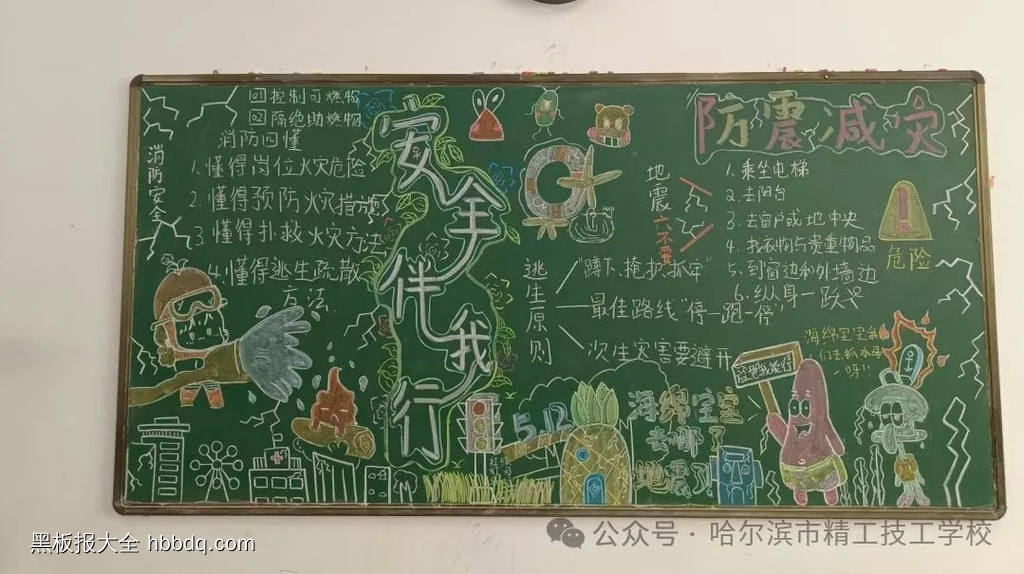 回控制可燃物
回隔绝助燃物
消防四懂
消防安全
1.懂得岗位火灾危险
2.懂得预防火灾措施
3.懂得扑救火灾方法
4.懂得逃生疏散
方法
安全伴我行
防震减灾
地震
六不要
1.乘坐电梯
2.去阳台
3.去窗户或地中央
4.找衣物与贵重物品
5.到窗边和外墙边
6.纵身一跃
危险
逃生原则
"蹲下、掩护、抓牢"
最佳路线"停一跑一停"
次生灾害要避开
5.12
海绵宝宝
去哪了
地震了
海绵宝宝我
们去抓水母
吧!!
黑板报大全 hbbdq.com
公众号·哈尔滨市精工技工学校